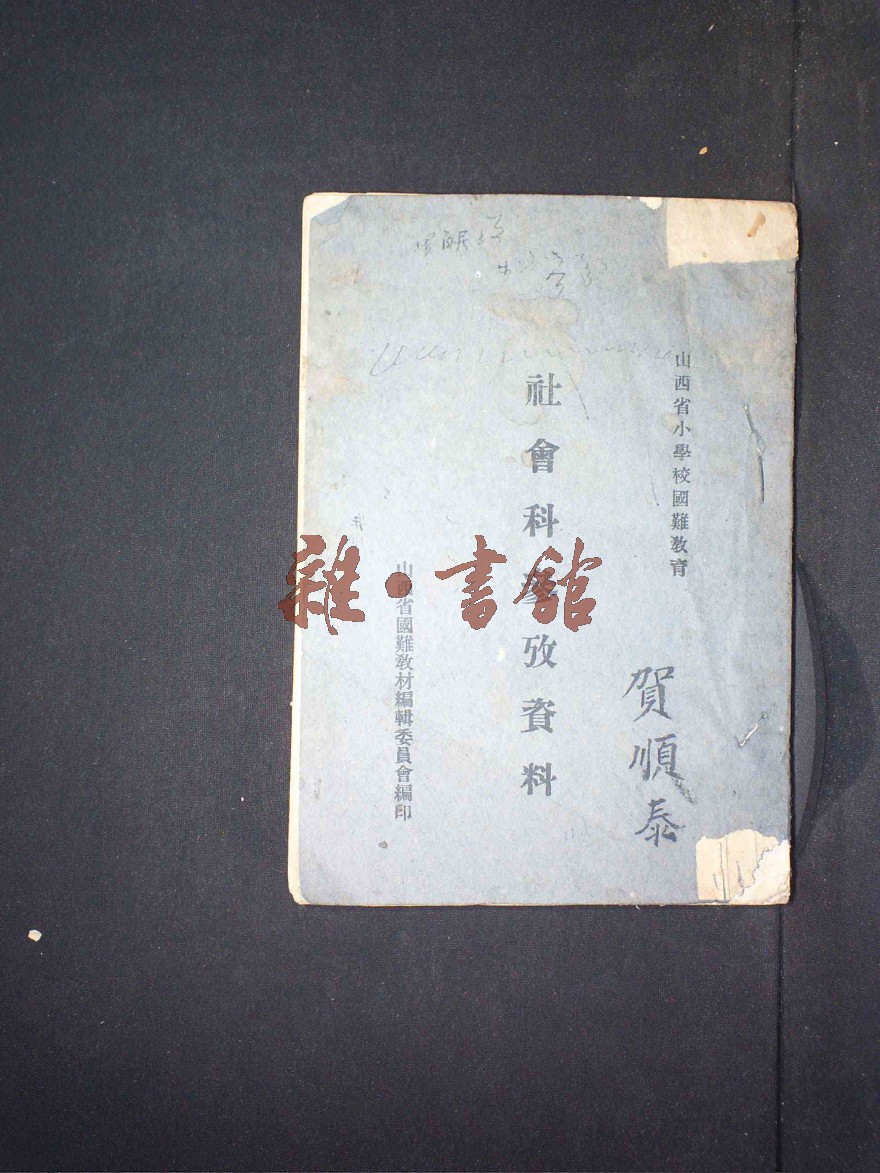 山西省小學校國難教育
賀順泰
社會科參攷資料
山西省國難教材編輯委員會編印
雜·書館